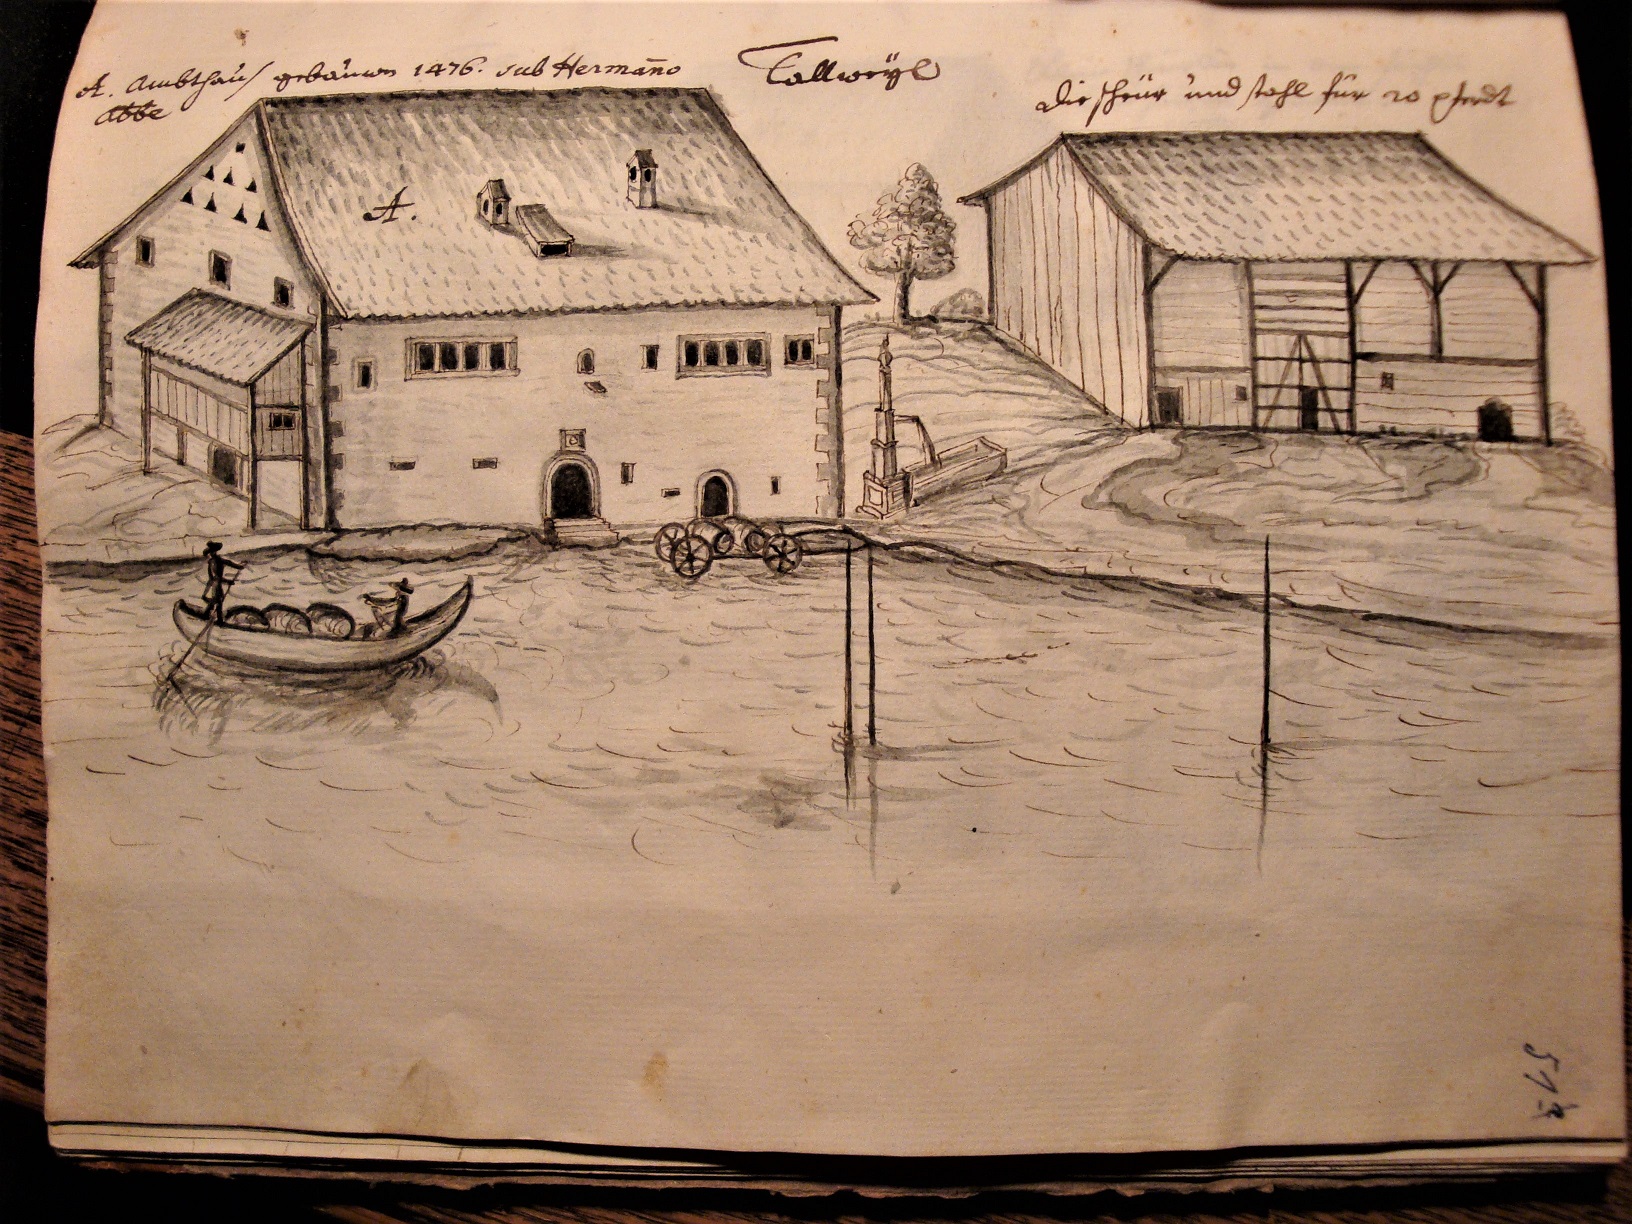 A. Ambthauß gebauwen 1476. sub Hermaño
Abbe
Tallweÿl
Die scheür und stahl für 20 pferdt
A.